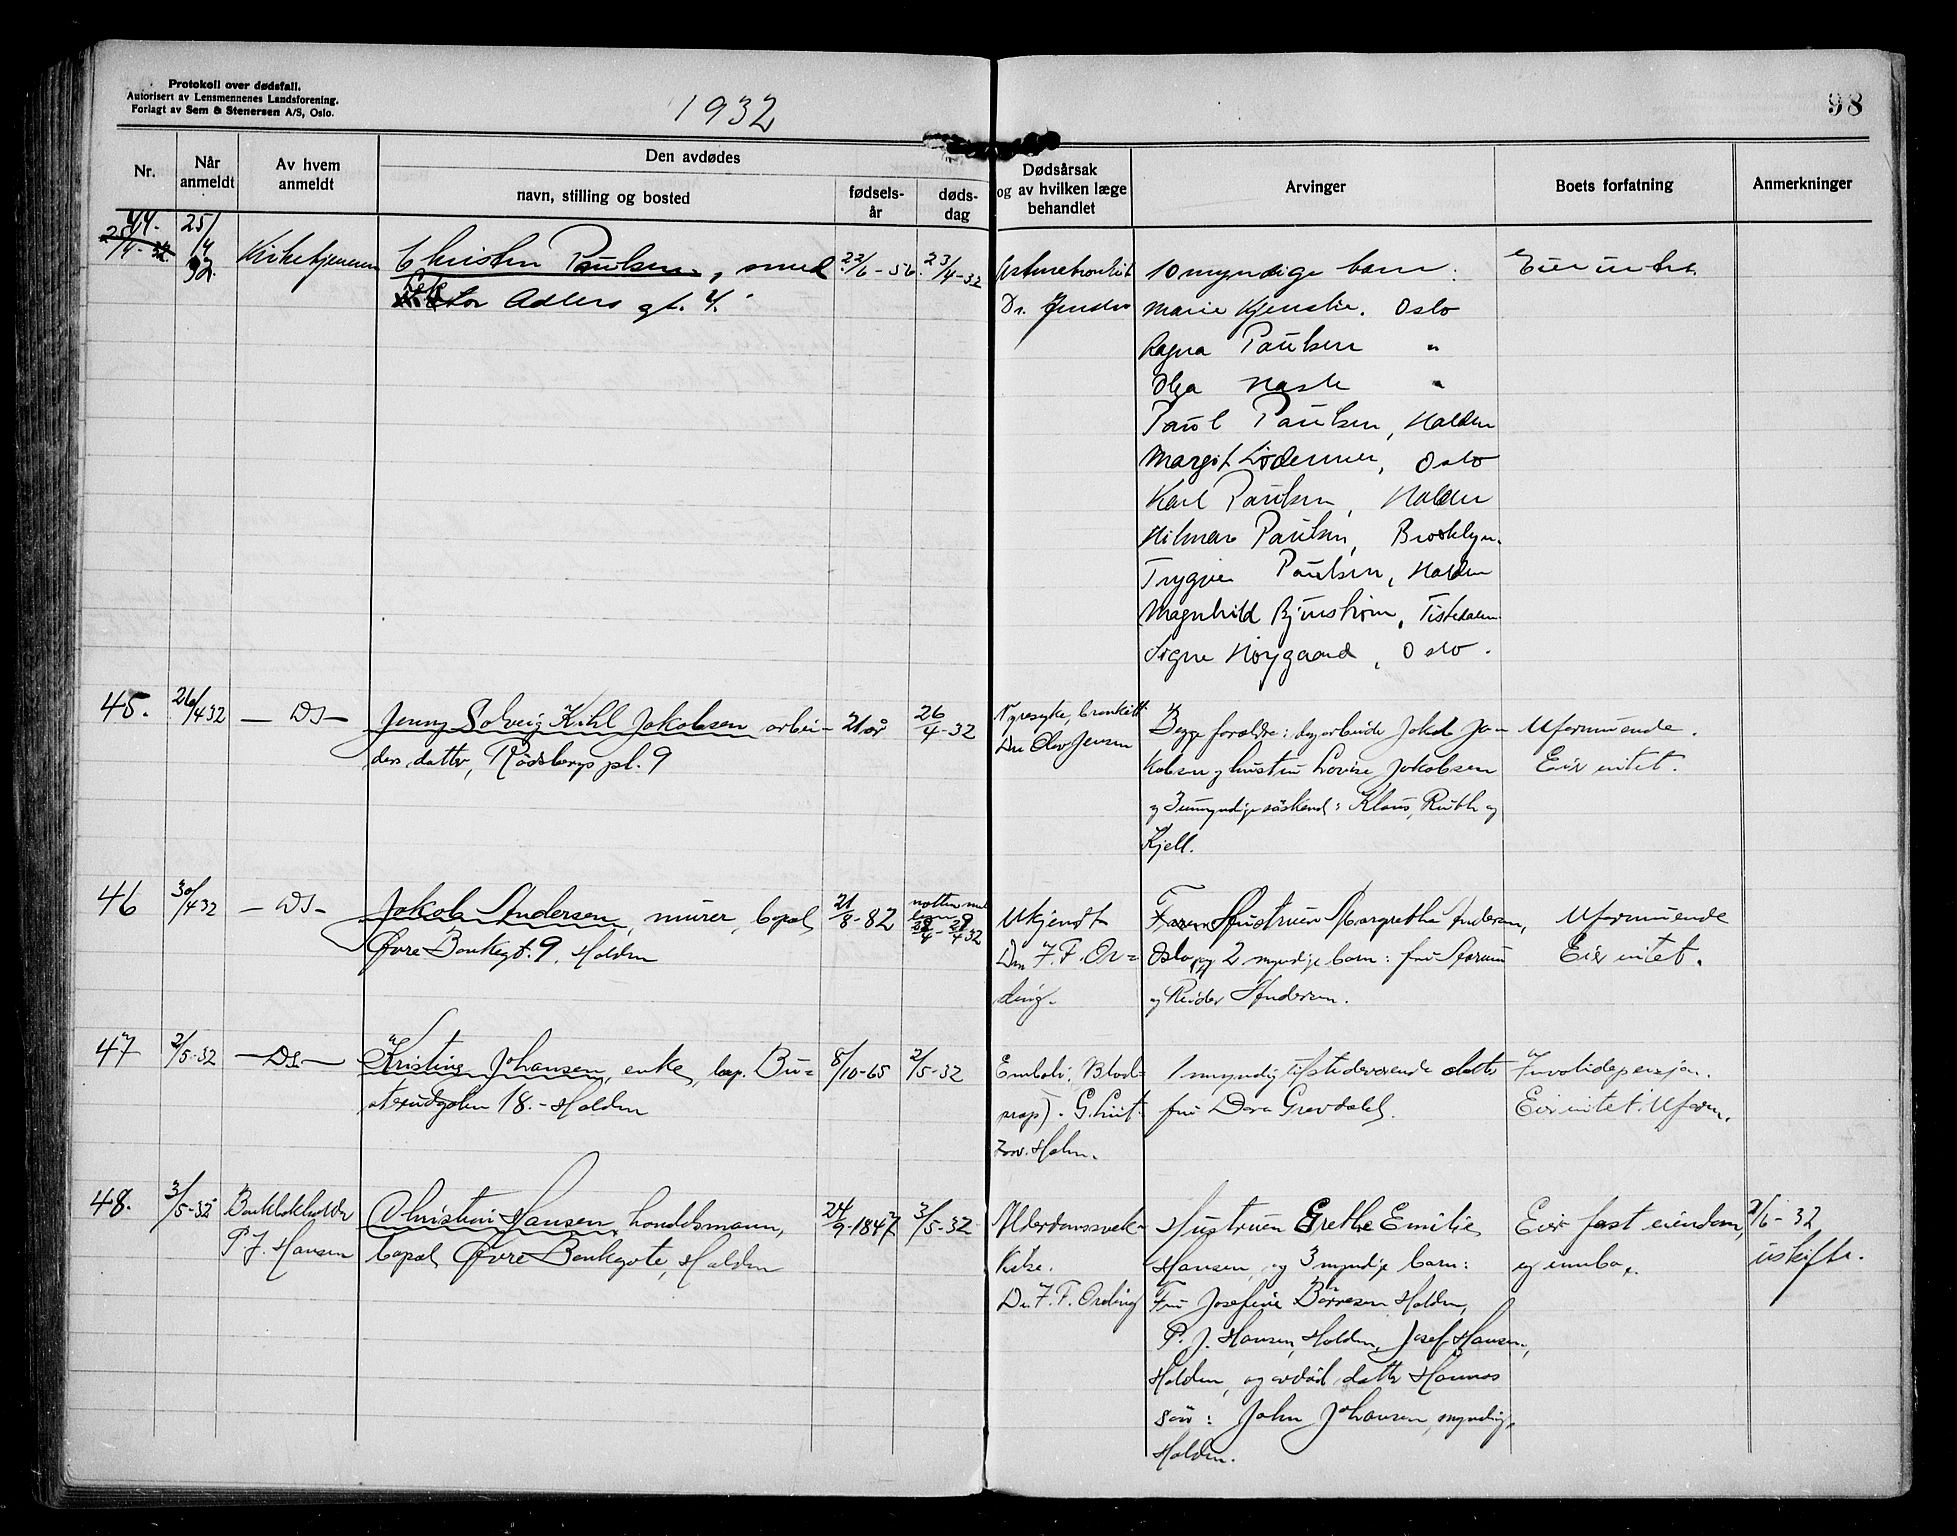 Protokoll over dødsfall.
Autorisert av Lensmennenes Landsforening.
Forlagt av Sem & Stenersen A/S, Oslo.
1932
98
Nr.
Når anmeldt
Av hvem anmeldt
Den avdødes
navn, stilling og bosted
fødsels-år
døds-dag
Dødsårsak og av hvilken læge behandlet
Arvinger
Boets forfatning
Anmerkninger
44.
25/4 32.
Kirketjeneren
Christen Paulsen, smed
Adlers gt. 4.
22/6-56.
23/4-32
Dr.
10 myndige barn.
Marie Oslo
Ragna Paulsen "
Olga "
Paul Paulsen, Halden
Margit Oslo
Karl Paulsen, Halden
Hilmar Paulsen, Brooklyn.
Trygve Paulsen, Halden
Magnhild Tistedalen
Signe Høygaard, Oslo.
Eier intet.
45.
26/4 32
— Ds —
Jenny Solveig Kihl Jakobsen, arbei-
ders datter, Rødsbergs pl. 9
21 år
26/4-32
Nyresyke, bronkitt
Dr. Olav Jensen
Begge foreldre: Jakob Ja-
kobsen og hustru Lovise Jakobsen
og 3 umyndige søskend: Klaus, Ruth og
Kjell.
Uformuende.
Eier intet.
46
30/4 32
— Ds —
Jakob Andersen, murer, bopæl
Øvre Bankegt. 9, Halden
21/8-82
natten mel
lem 28/4-29/4 32
Ukjendt
Dr. F. F. Or=
ding.
Hustruen Margrethe Andersen,
Oslo, og 2 myndige barn: fru
og Reidar Andersen.
Uformuende
Eier intet.
47
2/5-32
— Ds —
Kristine Johansen, enke, bop. Bu=
skrudgaten 18. - Halden
8/10-65
2/5-32
Emboli. Blod=
prop). G.
Holm.
1 myndig tilstedeværende datter
fru Dora Grevdahl.
Invalidepensjon.
Eier intet. Uform.
48.
3/5-32
Bankbokholder
P. J. Hansen
Christen Hansen, handelsmann,
bopæl Øvre Bankgate, Halden
24/9-1847
3/5-32
Alderdomssvek-
kelse.
Dr. F. F. Ording
Hustruen Grethe Emilie
Hansen, og 3 myndige barn:
Fru Josefine Børresen Halden,
P. J. Hansen, Halden, Josef Hansen,
Halden, og avdød datter Hannas
søn: John Johansen, myndig,
Halden.
Eier fast eiendom,
og innbo.
2/6-32
uskifte.